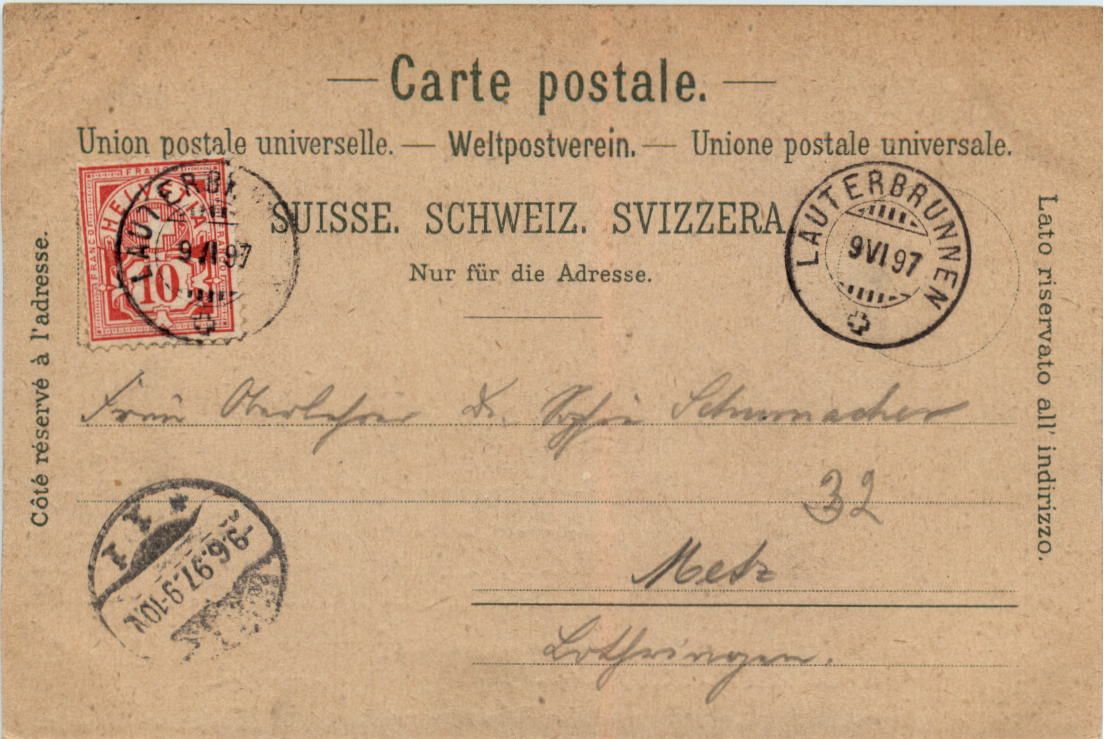 — Carte postale. —
Union postale universelle. — Weltpostverein. — Unione postale universale.
SUISSE. SCHWEIZ. SVIZZERA.
Nur für die Adresse.
Côté réservé à l'adresse.
Lato riservato all' indirizzo.
FRANCO
HELVETIA
10
LAUTERBRUNNEN
9 VI 97
LAUTERBRUNNEN
9 VI 97
Frau Oberlehrer Dr. Sophie Schumacher
32
Metz
Lothringen.
9.6.97.9-10V.